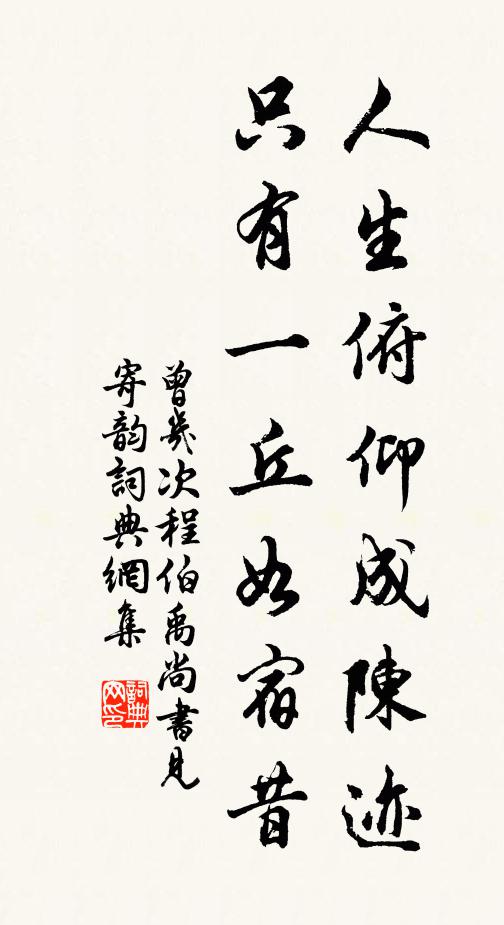 人生俯仰成陳迹
只有一丘如宿昔
曾幾次程伯禹尚書見
寄韵詞典網集
詞典
网印